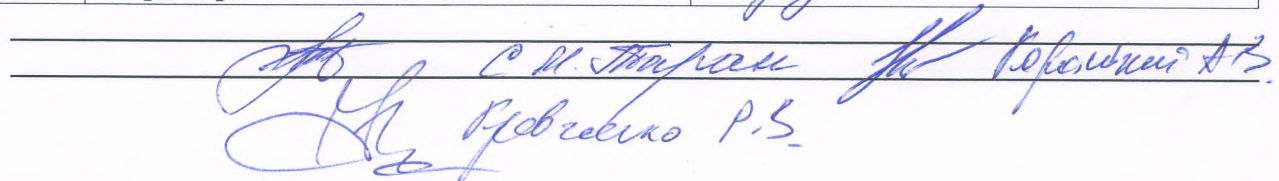 С.М. Таран Короткий А.В.
Кравченко Р.В.